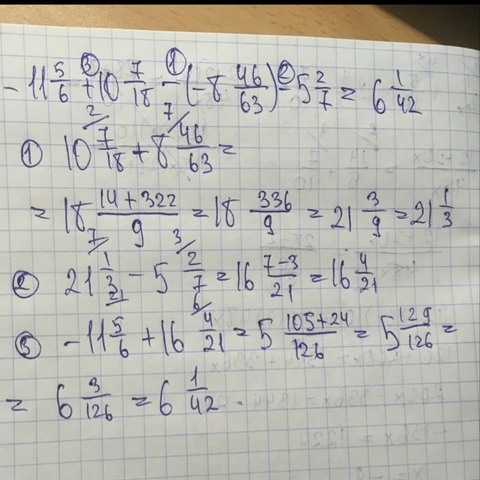 - 11 5/6 + 10 7/18 - (-8 46/63) - 5 2/7 = 6 1/42
① 10 7/18 + 8 46/63 =
= 18 14+322/9 = 18 336/9 = 21 3/9 = 21 1/3
② 21 1/3 - 5 2/7 = 16 7-3/21 = 16 4/21
③ -11 5/6 + 16 4/21 = 5 105+24/126 = 5 129/126 =
= 6 3/126 = 6 1/42